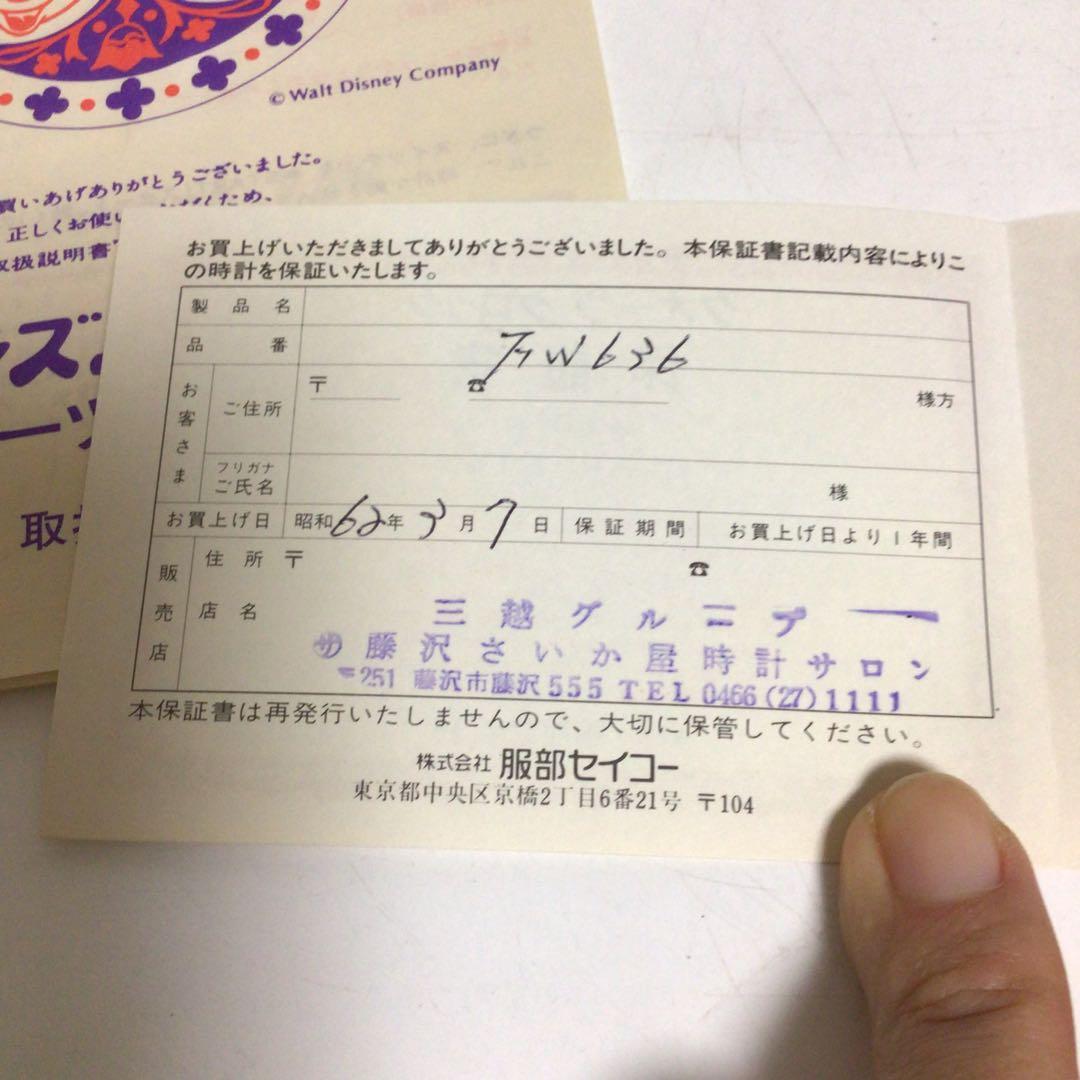 © Walt Disney Company
買いあげありがとうございました。
正しくお使い
ため、
取扱説明書
ズ
ーツ
取扱
お買上げいただきましてありがとうございました。本保証書記載内容によりこ
の時計を保証いたします。
製品名
品番 FW636
お客さま
ご住所 〒 ☎ 様方
フリガナ
ご氏名 様
お買上げ日 昭和62年3月7日 保証期間 お買上げ日より1年間
販売店
住所 〒 ☎
店名 三越グループ
㋚藤沢さいか屋時計サロン
〒251 藤沢市藤沢555 TEL 0466(27)1111
本保証書は再発行いたしませんので、大切に保管してください。
株式会社 服部セイコー
東京都中央区京橋2丁目6番21号 〒104